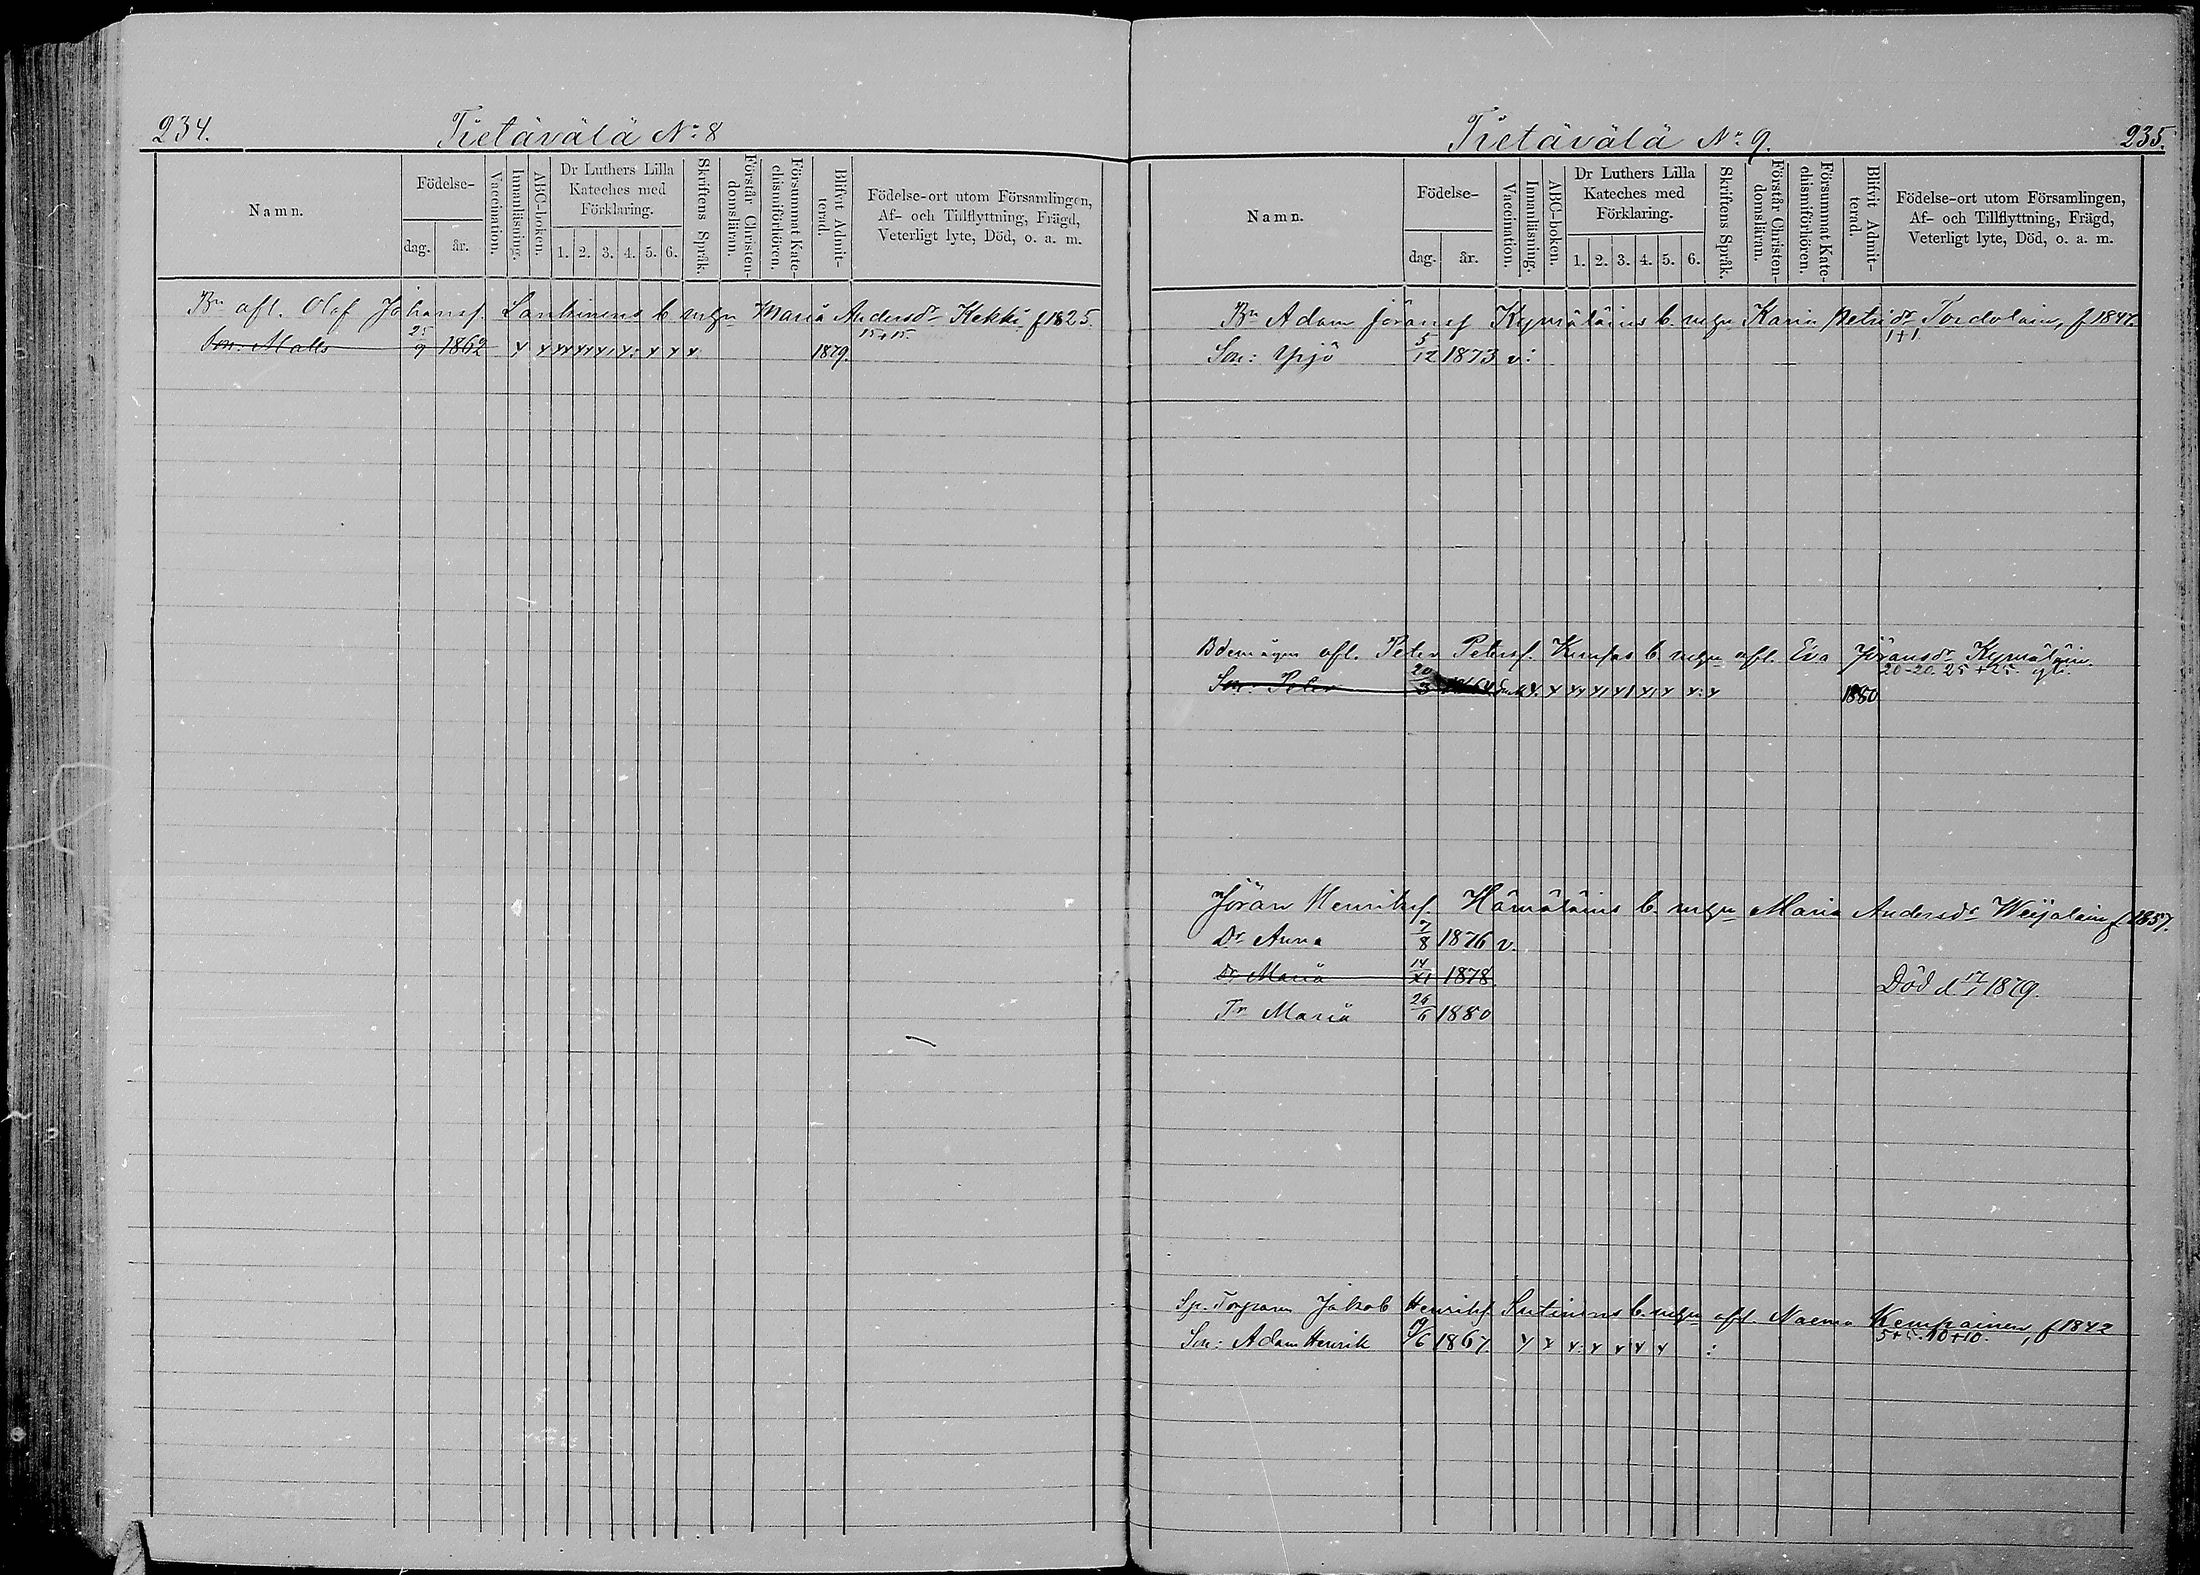 234. Tietävälä No 8
Namn. Födelse- dag. år. Vaccination. Innanläsning. ABC-boken. Dr Luthers Lilla Kateches med Förklaring. 1. 2. 3. 4. 5. 6. Skriftens Språk. Förstår Christendomsläran. Försummat Katechismiförhören. Blifvit Admitterad. Födelse-ort utom Församlingen, Af- och Tillflyttning, Frägd, Veterligt lyte, Död, o. a. m.
Bn afl. Olof Johansf. Lankinens b. m. Maria Andersdr Kekki f 1825.
15+15.
Son: Matts 25/9 1862 1879.
Tietävälä No 9. 235.
Namn. Födelse- dag. år. Vaccination. Innanläsning. ABC-boken. Dr Luthers Lilla Kateches med Förklaring. 1. 2. 3. 4. 5. 6. Skriftens Språk. Förstår Christendomsläran. Försummat Katechismiförhören. Blifvit Admitterad. Födelse-ort utom Församlingen, Af- och Tillflyttning, Frägd, Veterligt lyte, Död, o. a. m.
Bn Adam Göransf Kymäläins b. Karin Petridr f 1847.
1+1.
Son: Yrjö 5/12 1873 v:
afl. Peter Petersf. b. afl. Eva Göransdr Kymäläin.
20-20. 25+25.
Son: Peter 20/3 1864 1880
Göran Henriksf. Hämäläins b. Maria Andersdr Weijalain f 1857.
Dr Anna 7/8 1876 v.
Dr Maria 14/XI 1878 Död d 17/1 1879.
Dr Maria 26/6 1880
Sp. Torparn Jakob Henriksf. Sutinens b. afl. Naema Kemppainen, f 1842
5+5. 10+10.
Son: Adam Henrik 9/6 1867.